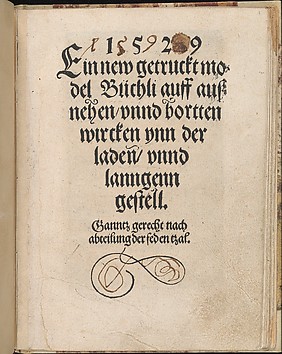 1529
Ein new getruckt mo-
del Büchli auff auß
nehen/ vnnd bortten
wircken ynn der
laden/ vnnd
lanngenn
gestell.
Ganntz gerecht nach
abteilung der feden tzal.